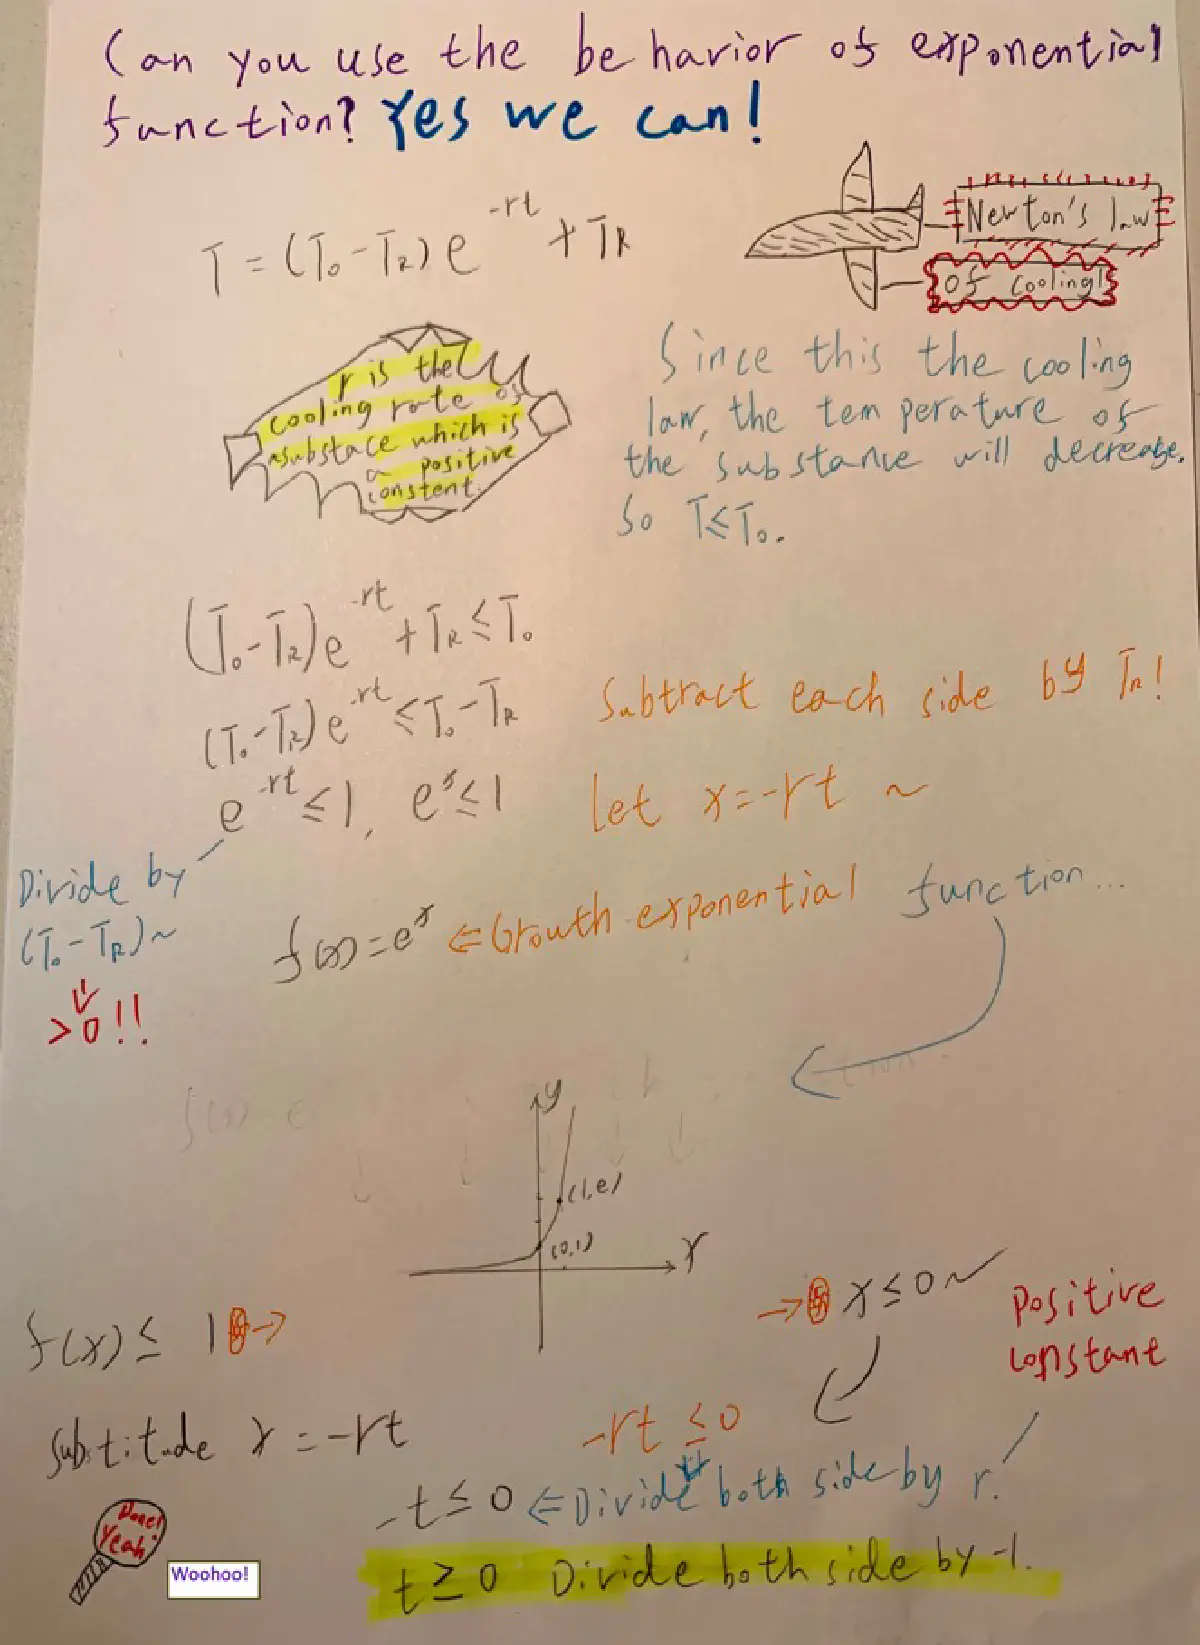 Can you use the behavior of exponential
function? Yes we can!
T = (T₀-T_R) e^-rt + T_R
Newton's law
of cooling!
r is the
cooling rate of
a substace which is
a positive
constent.
Since this the cooling
law, the temperature of
the substance will decrease.
So T≤T₀.
(T₀-T_R)e^-rt + T_R ≤ T₀
(T₀-T_R)e^-rt ≤ T₀-T_R Subtract each side by T_R!
e^-rt ≤ 1, e^x ≤ 1 let x=-rt ~
Divide by
(T₀-T_R)~
>0!!
f(x)=e^x ⇐ Growth exponential function...
y
(1,e)
(0,1)
x
f(x) ≤ 1 →
→ x ≤ 0~
Positive
constant
Substitude x = -rt
-rt ≤ 0
-t ≤ 0 ⇐ Divide both side by r.
t ≥ 0 Divide both side by -1.
Done!
Yeah!
Woohoo!